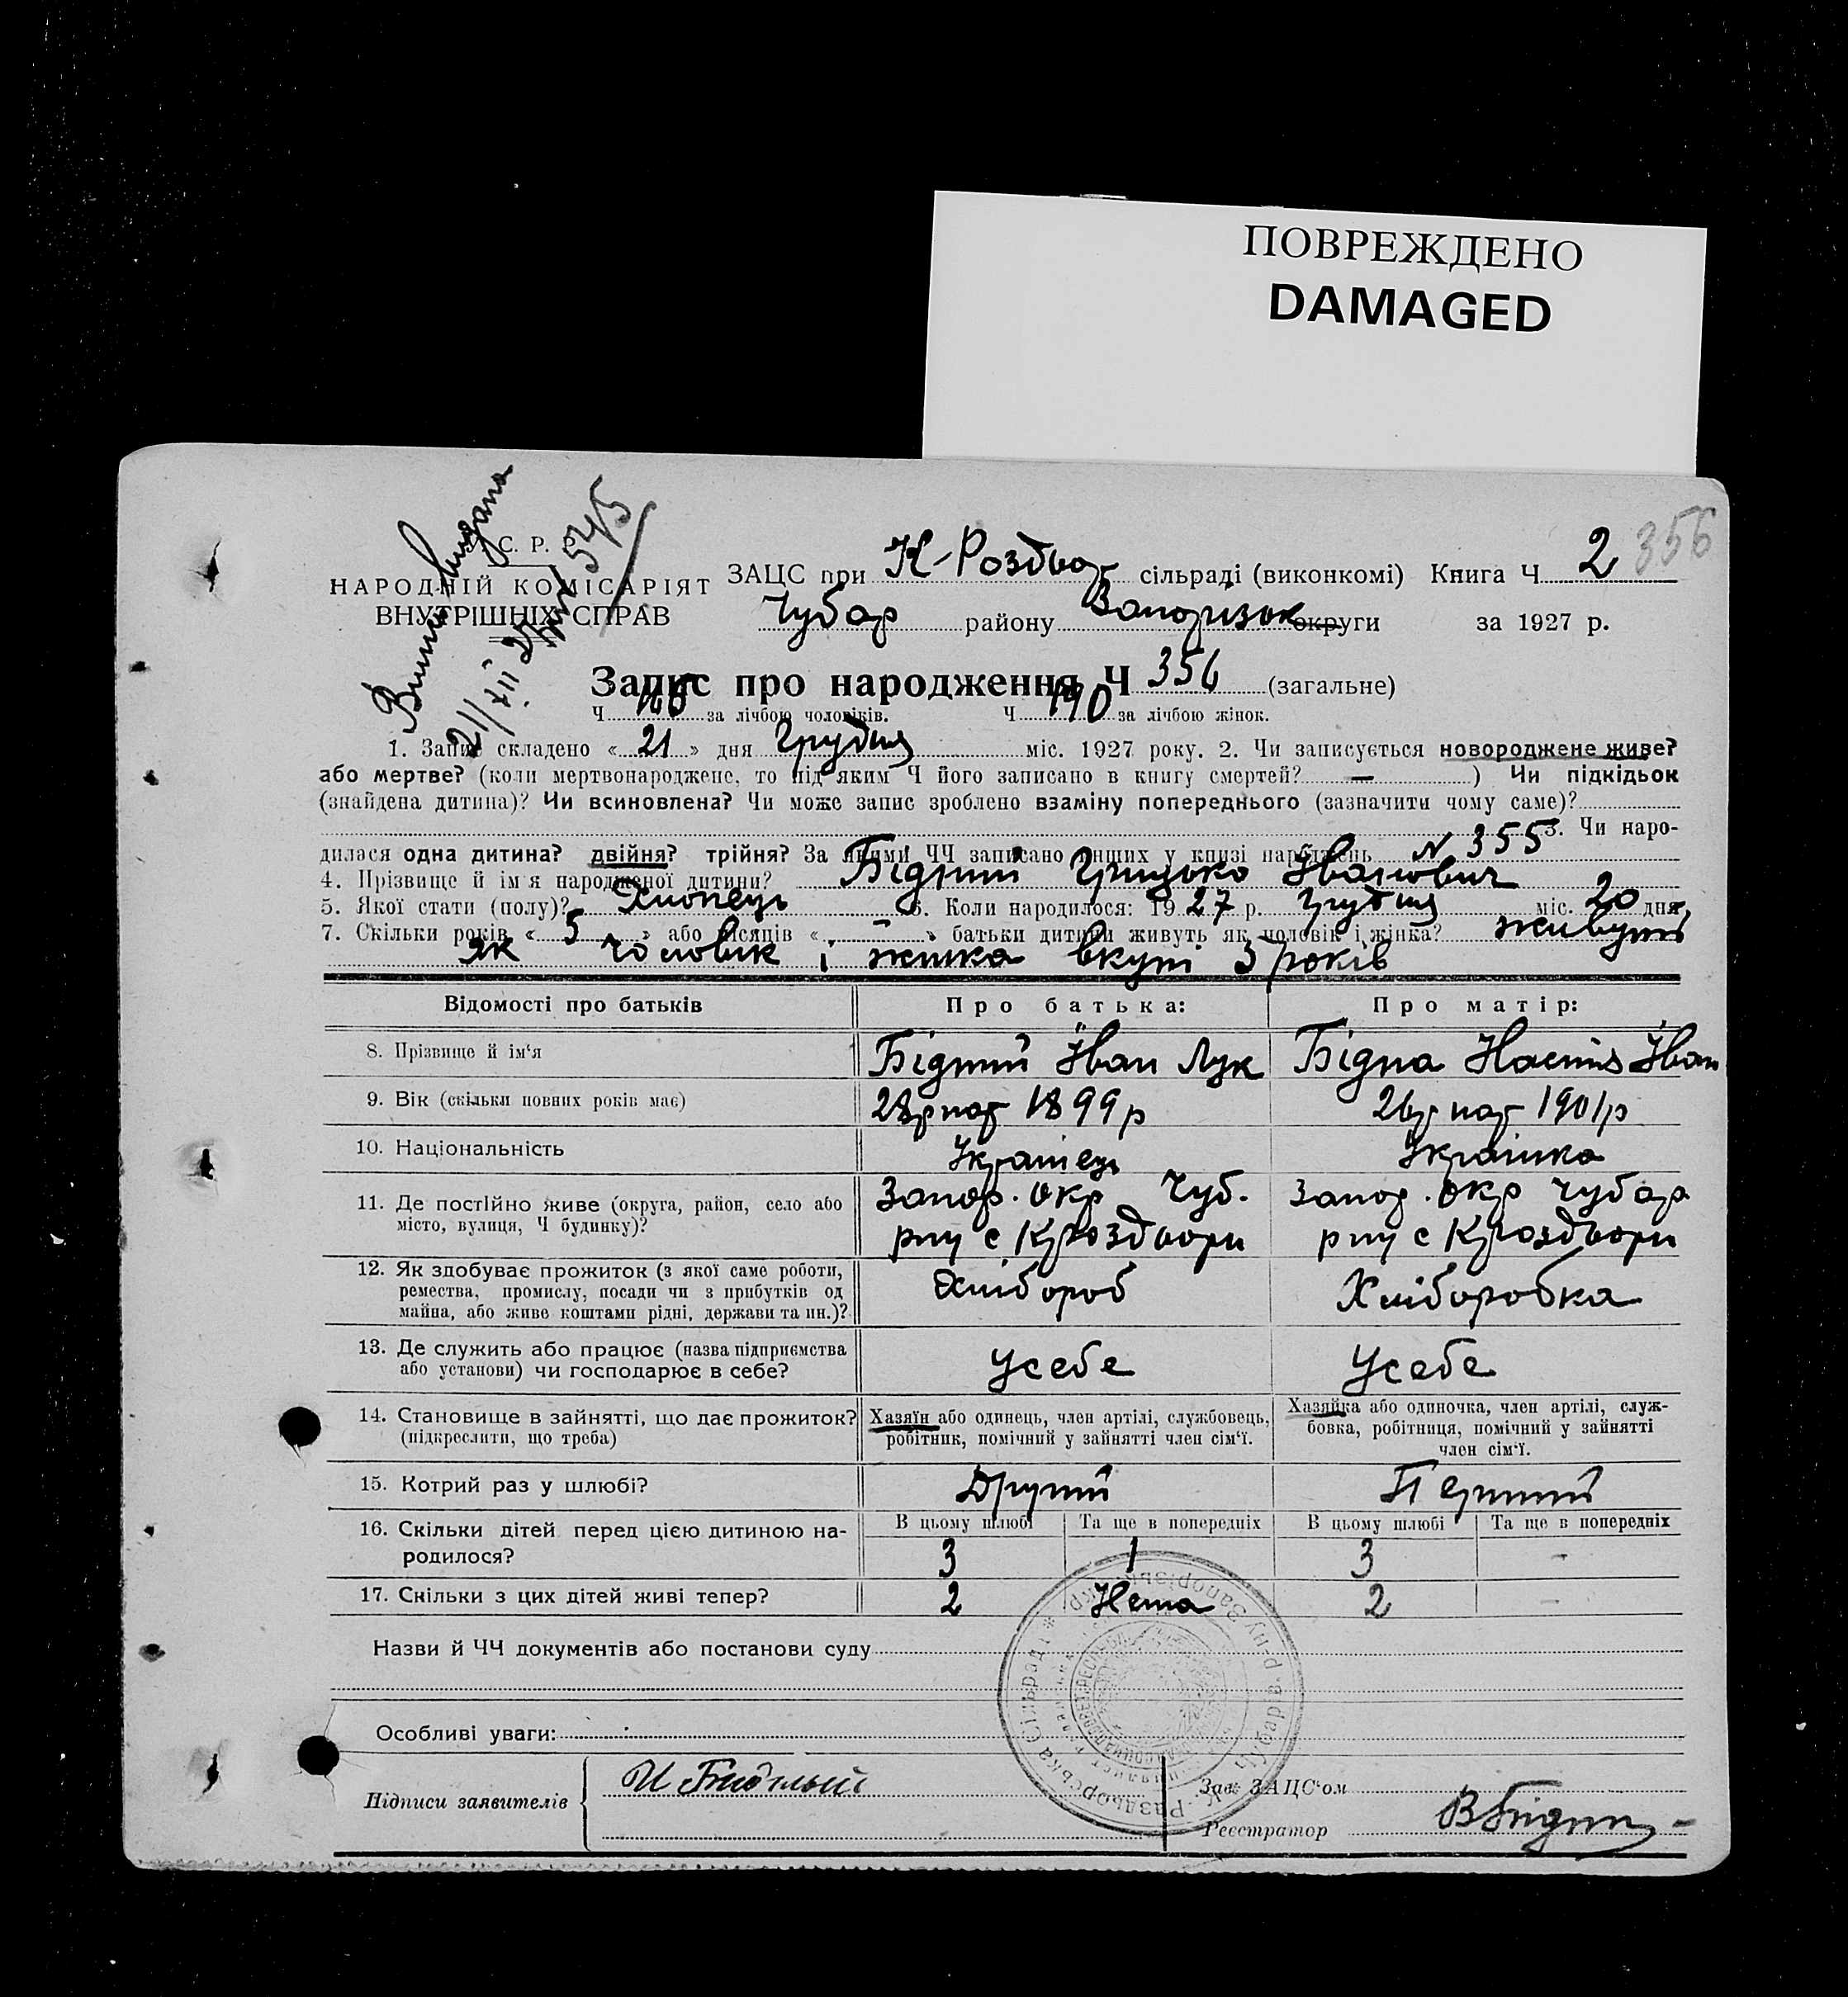 ПОВРЕЖДЕНО
DAMAGED
356
видана
С. Р. Р.
НАРОДНІЙ КОМІСАРІЯТ
ВНУТРІШНІХ СПРАВ
ЗАЦС при К-Роздор сільраді (виконкомі) Книга Ч 2
Чубар району Запорізьк округи за 1927 р.
Запис про народження Ч 356 (загальне)
Ч за лічбою чоловіків. Ч 190 за лічбою жінок.
1. Запис складено « 21 » дня Грудня міс. 1927 року. 2. Чи записується новороджене живе?
або мертве? (коли мертвонароджене, то під яким Ч його записано в книгу смертей? — ) Чи підкідьок
(знайдена дитина)? Чи всиновлена? Чи може запис зроблено взаміну попереднього (зазначити чому саме)?
3. Чи наро-
дилася одна дитина? двійня? трійня? За якими ЧЧ записано инших у книзі народжень N 355
4. Прізвище й ім'я народженої дитини? Бідний Грицько Іванович
5. Якої стати (полу)? Хлопець 6. Коли народилося: 1927 р. Грудня міс. 20 дня,
7. Скільки років « 5 » або місяців « - » батьки дитини живуть як чоловік і жінка? живуть
як чоловік і жінка вкупі 5 років
Відомості про батьків Про батька: Про матір:
8. Прізвище й ім'я Бідний Іван Лук Бідна Настя Іван
9. Вік (скільки повних років має) 28р нар 1899р 26р нар 1901р
10. Національність Українець Українка
11. Де постійно живе (округа, район, село або Запор. окр Чуб. Запор. окр Чубар
місто, вулиця, Ч будинку)? рну с Кроздори рну с Кроздори
12. Як здобуває прожиток (з якої саме роботи,
ремества, промислу, посади чи з прибутків од Хлібороб Хліборобка
майна, або живе коштами рідні, держави та ин.)?
13. Де служить або працює (назва підприємства Усебе Усебе
або установи) чи господарює в себе?
14. Становище в зайнятті, що дає прожиток? Хазяїн або одинець, член артілі, службовець, Хазяйка або одиночка, член артілі, служ-
(підкреслити, що треба) робітник, помічний у зайнятті член сім'ї. бовка, робітниця, помічний у зайнятті
член сім'ї.
15. Котрий раз у шлюбі? Другий Перший
16. Скільки дітей перед цією дитиною на- В цьому шлюбі Та ще в попередніх В цьому шлюбі Та ще в попередніх
родилося? 3 1 3 -
17. Скільки з цих дітей живі тепер? 2 Нема 2 -
Назви й ЧЧ документів або постанови суду
Особливі уваги:
Підписи заявителів И Бидный Зав. ЗАЦС'ом
Реєстратор В Бідн